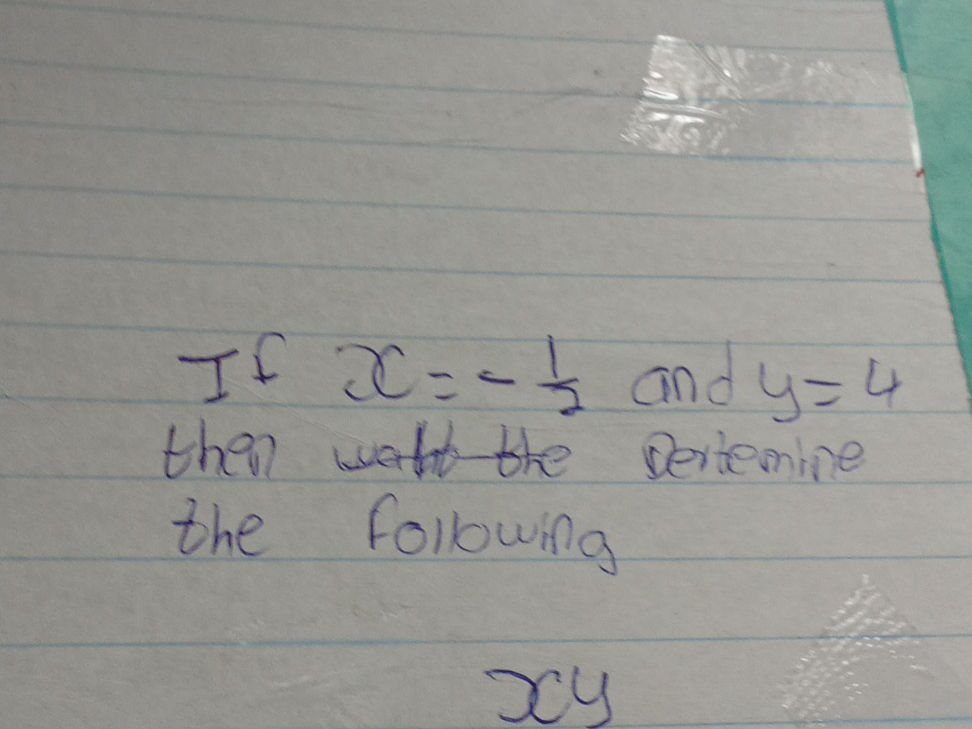 If x = - 1/2 and y = 4
then the Dertemine
the following
xy